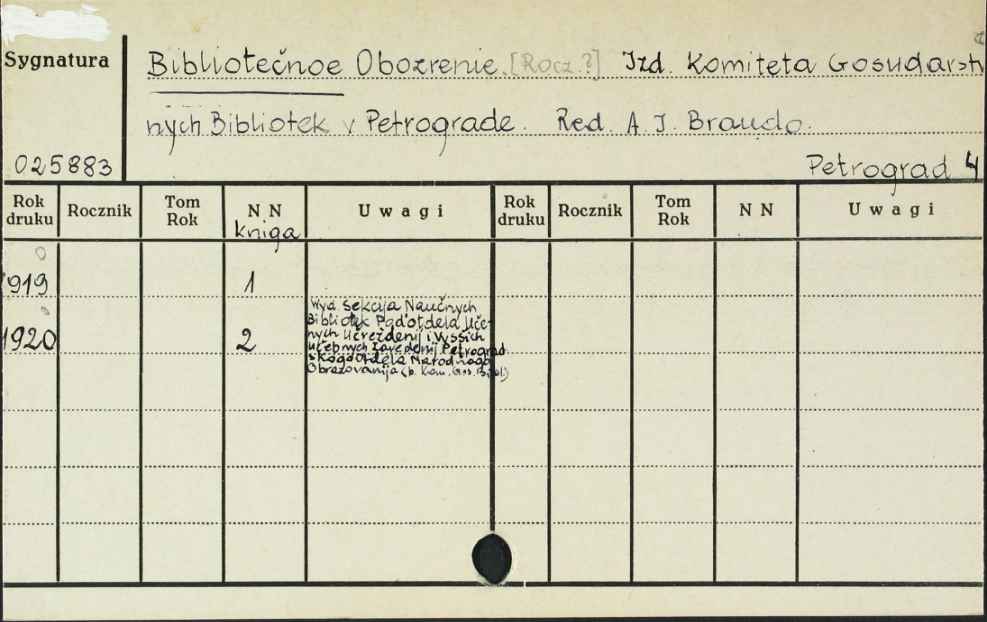 Sygnatura
Bibliotečnoe Obozrenie. [Rocz.?] Izd. Komiteta Gosudarstv
nych Bibliotek v Petrograde. Red. A. I. Braudo.
025883
Petrograd 4
Rok druku Rocznik Tom Rok NN Uwagi Rok druku Rocznik Tom Rok NN Uwagi
kniga
1919 1
1920 2
Wyd. Sekcija Naučnych
Bibliotek Pod'otdela Uče-
nych Učreždenij i Vysšich
učebnych Zavedenij Petrograd
skogo Otdela Narodnogo
Obrazovanija (b. Kom. Gos. Bibl.)